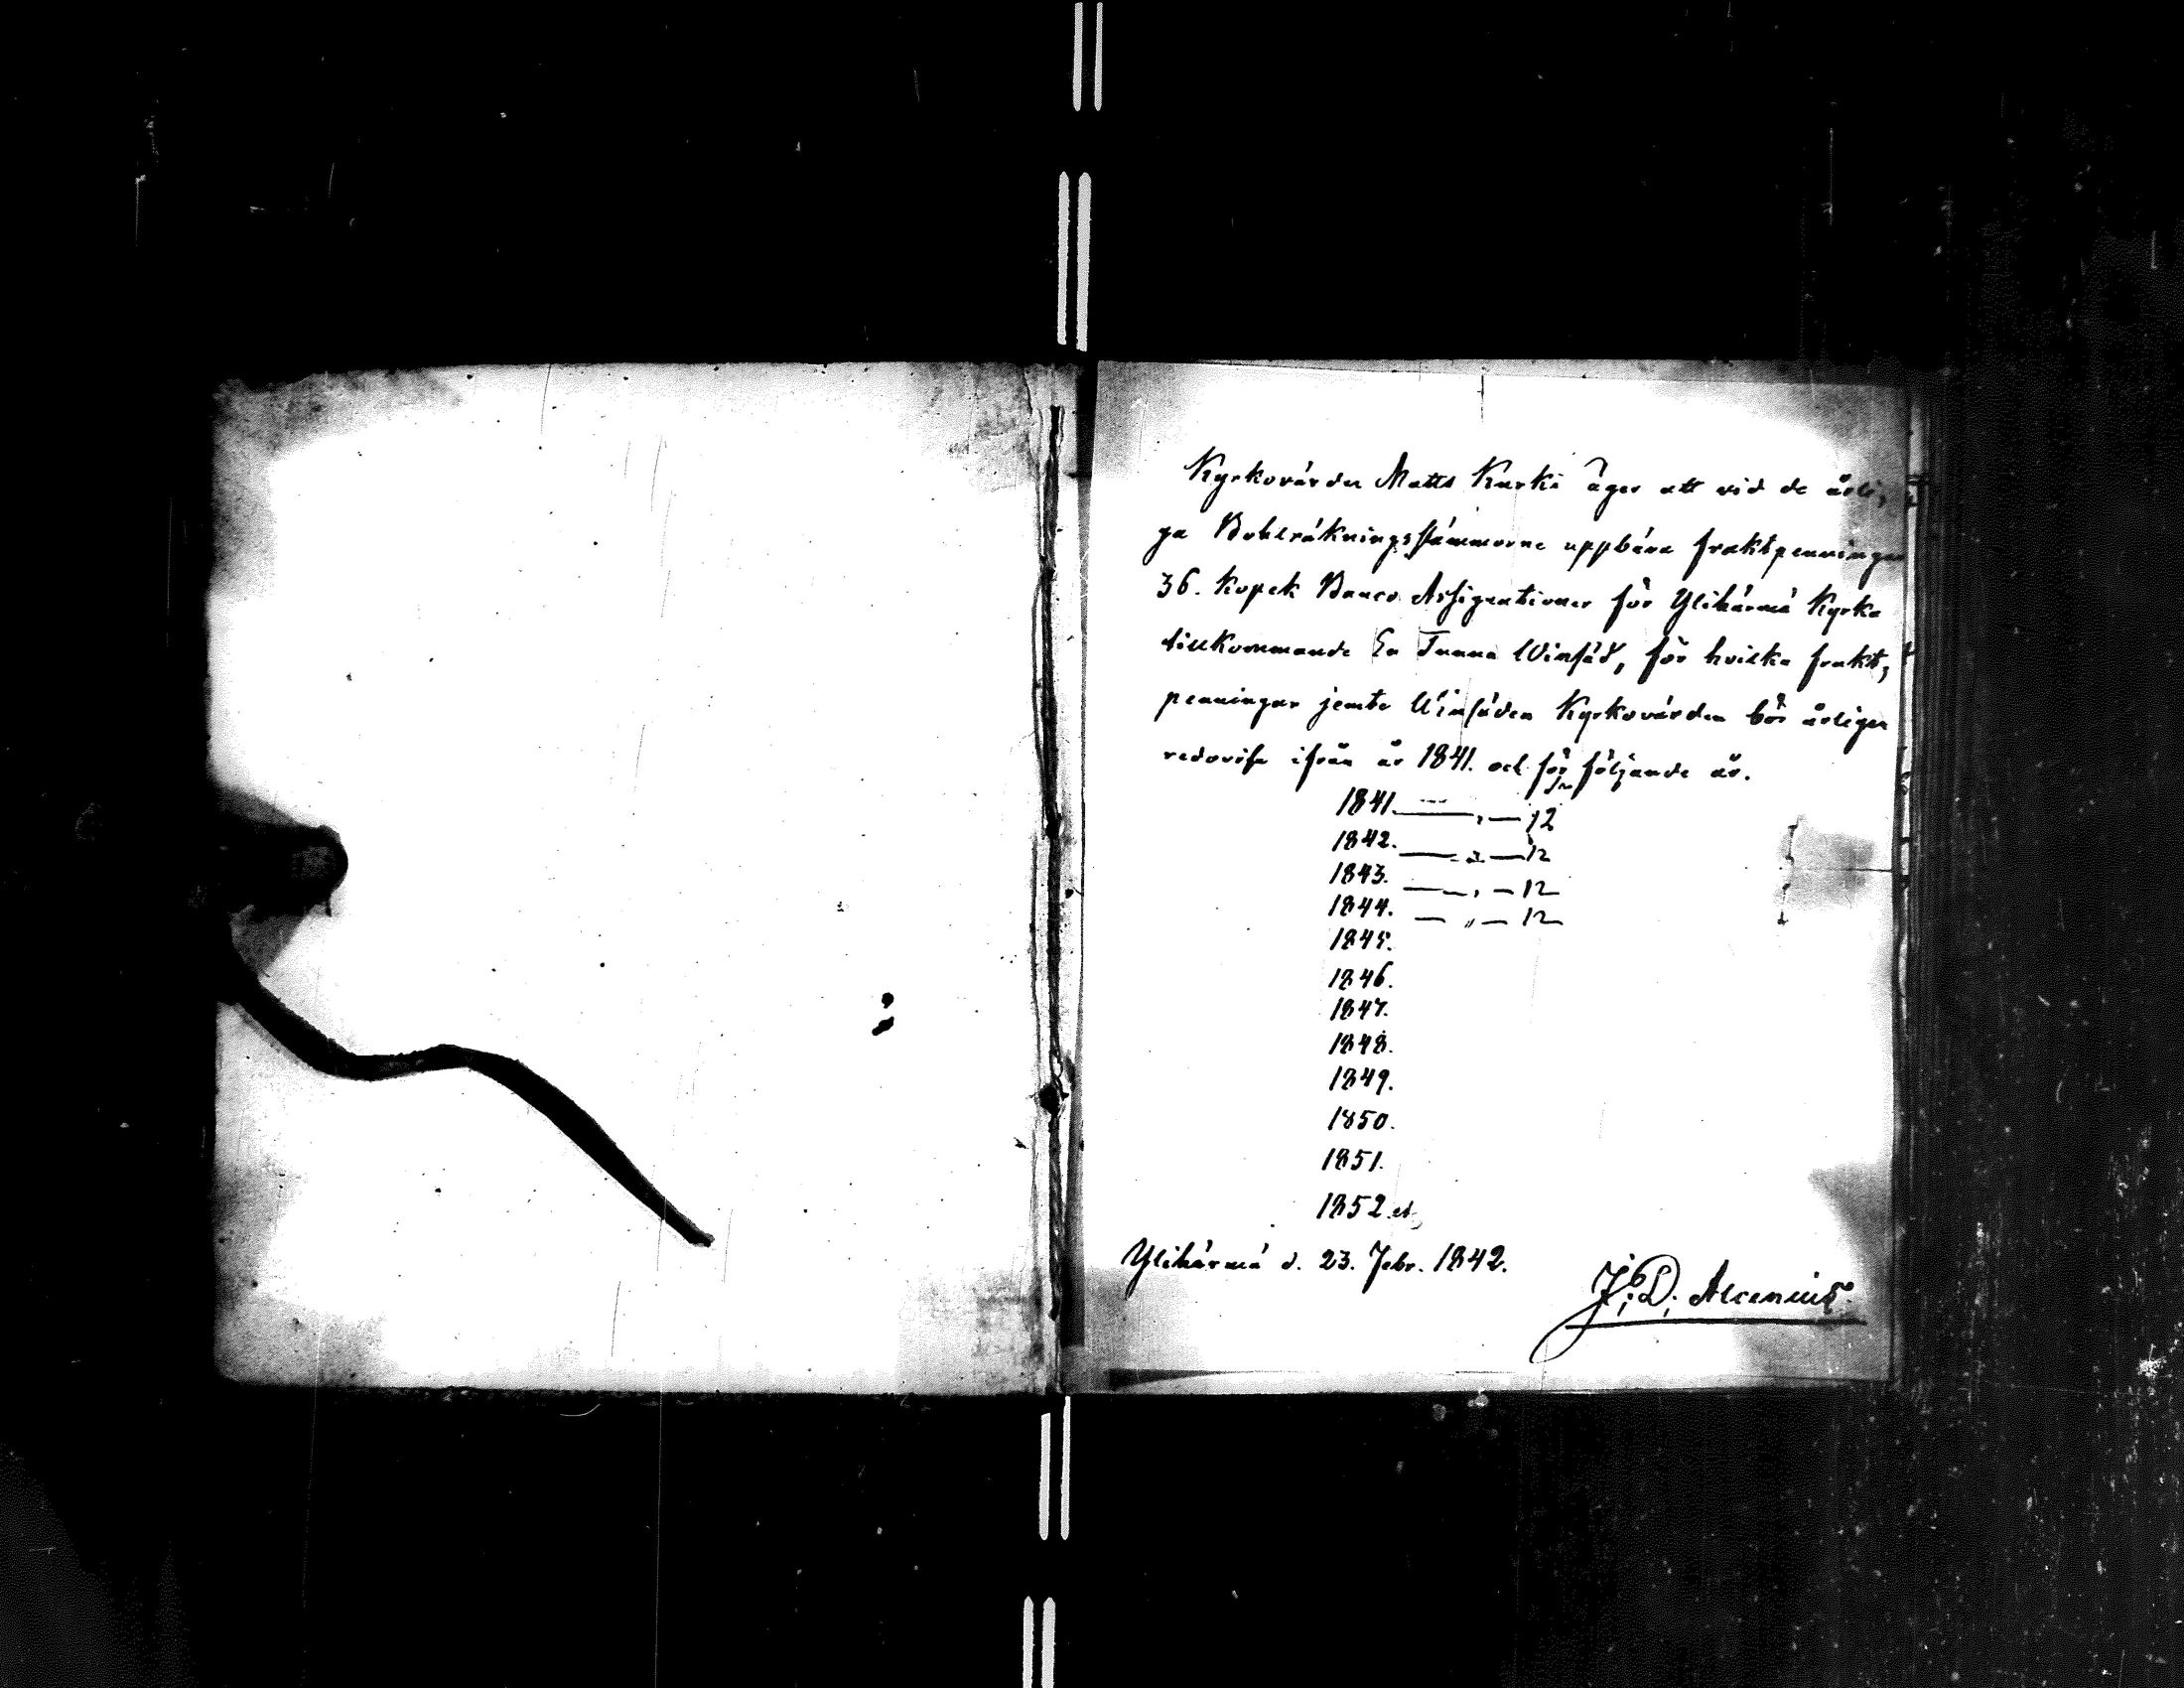 Kyrkovärden Matts Kurki äger att vid de årli,
ga Bohlräkningsstämmorne uppbära fraktpenningar
36. Kopek Banco Assignationer för Ylihärmä Kyrka
tillkommande En Tunna Winsäd, för hvilka frakt,
penningar jemte Winsäden Kyrkovärden bör årligen
redovisa ifrån år 1841. och för följande år.
1841. — , — 12
1842. — " — 12
1843. — , — 12
1844. — " — 12
1845.
1846.
1847.
1848.
1849.
1850.
1851.
1852.
Ylihärmä d. 23. Febr. 1842.
J: D: Alcenius